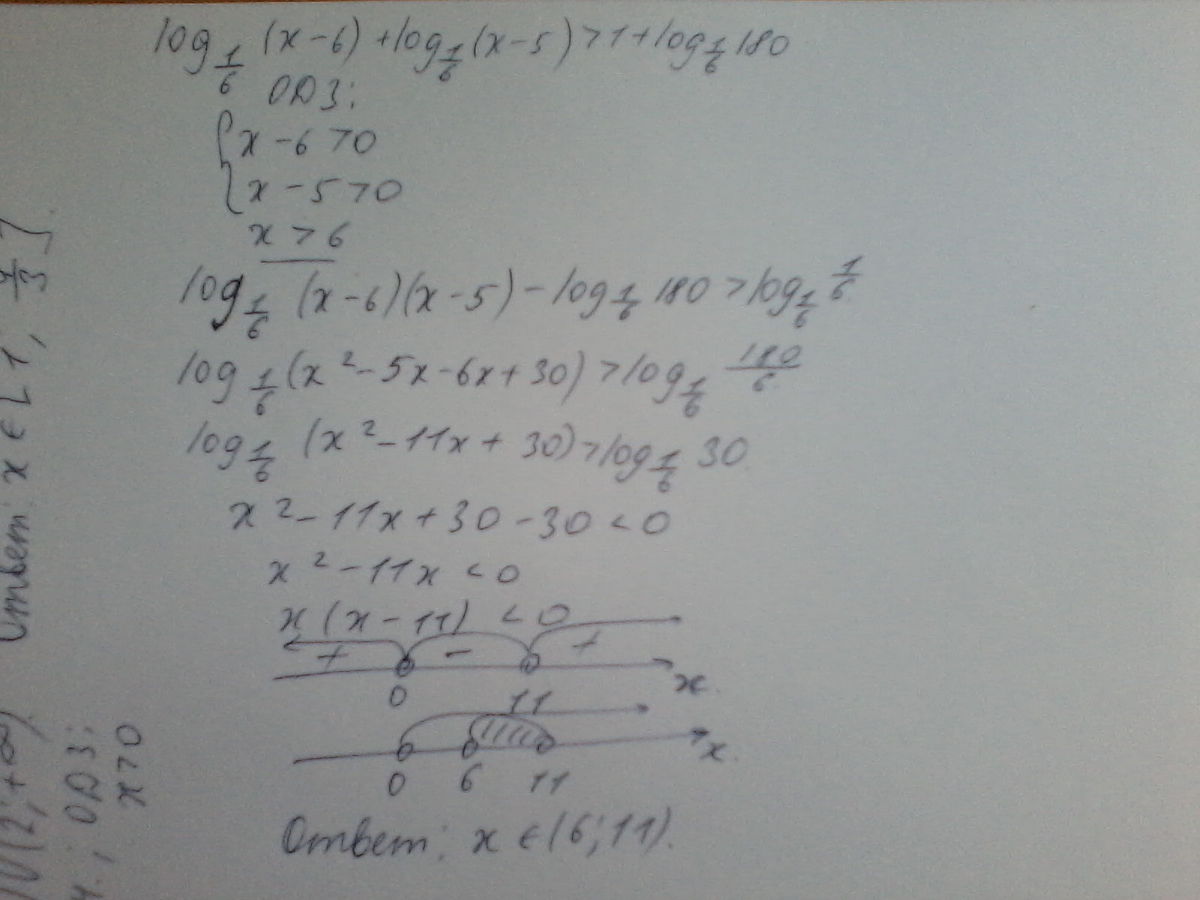 log_{1/6} (x-6) + log_{1/6} (x-5) > 1 + log_{1/6} 180
ОДЗ:
{ x - 6 > 0
{ x - 5 > 0
x > 6
log_{1/6} (x-6)(x-5) - log_{1/6} 180 > log_{1/6} 1/6
log_{1/6} (x² - 5x - 6x + 30) > log_{1/6} 180/6
log_{1/6} (x² - 11x + 30) > log_{1/6} 30
x² - 11x + 30 - 30 < 0
x² - 11x < 0
x (x - 11) < 0
+ - +
0 11 x
0 6 11 x
Ответ: x ∈ (6; 11).
Ответ: x ∈ [1,
3]
(2; +∞)
; ОДЗ:
x > 0